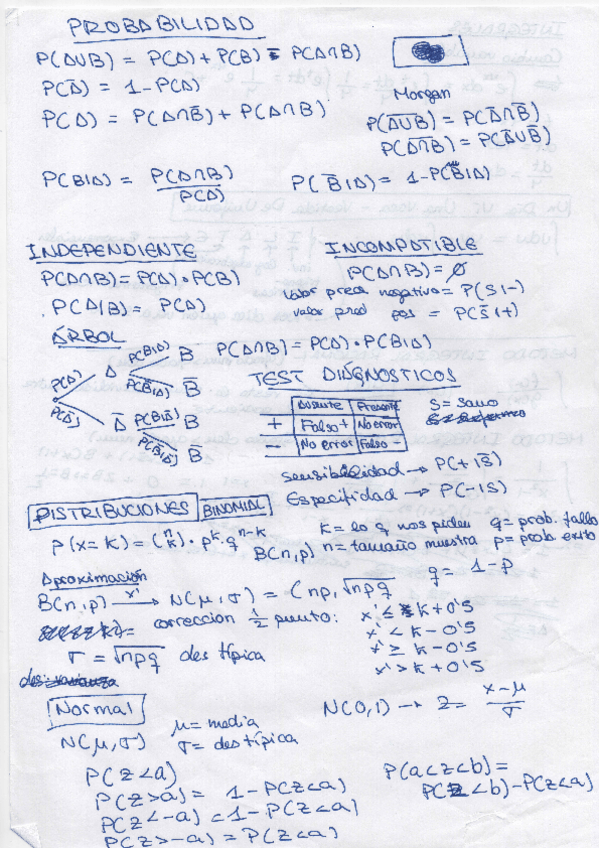 PROBABILIDAD
P(A∪B) = P(A) + P(B) - P(A∩B)
P(Ā) = 1-P(A)
P(A) = P(A∩B̄) + P(A∩B)
Morgan
P(A̅∪̅B̅) = P(Ā∩B̄)
P(A̅∩̅B̅) = P(Ā∪B̄)
P(B|A) = P(A∩B) / P(A)
P(B̄|A) = 1-P(B|A)
INDEPENDIENTE
P(A∩B) = P(A) · P(B)
P(A|B) = P(A)
INCOMPATIBLE
P(A∩B) = Ø
valor predc negativo = P(S|-)
valor pred pos = P(S̄|+)
ÁRBOL
P(A) A P(B|A) B
P(B̄|A) B̄
P(Ā) Ā P(B|Ā) B
P(B̄|Ā) B̄
P(A∩B) = P(A) · P(B|A)
TEST DIÁGNOSTICOS
Ausente Presente
+ Falso + No error
- No error Falso -
S = sano
sensibilidad → P(+|S̄)
Especifidad → P(-|S)
DISTRIBUCIONES BINOMIAL
P(x=k) = (n k) · p^k · q^n-k
K = lo q nos piden q = prob. fallo
B(n,p) n = tamaño muestra p = prob. exito
q = 1-p
Aproximación
B(n,p) x' → N(μ,σ) = (np, √npq)
corrección 1/2 punto:
x' ≤ k+0'5
x' < k-0'5
x' ≥ k-0'5
x' > k+0'5
σ = √npq des típica
Normal
N(μ,σ)
μ = media
σ = des típica
N(0,1) → z = x-μ / σ
P(z<a)
P(z>a) = 1-P(z<a)
P(z<-a) = 1-P(z<a)
P(z>-a) = P(z<a)
P(a<z<b) =
P(z<b) - P(z<a)